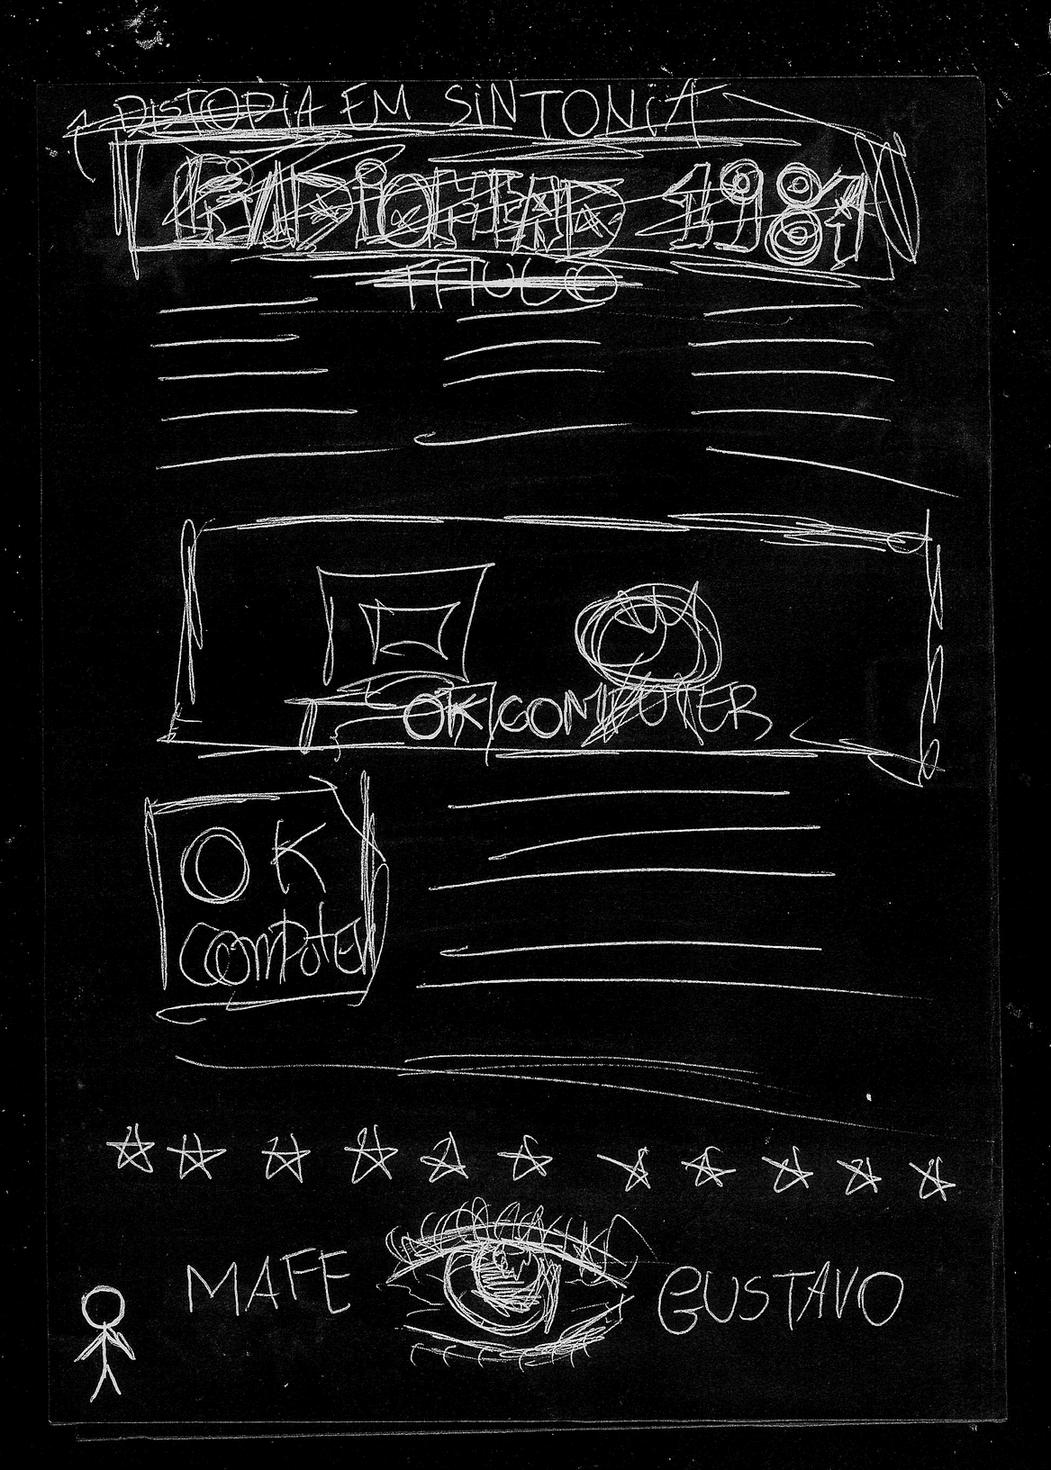 DISTOPIA EM SINTONIA
RADIOHEAD 1984
TITULO
OK COMPUTER
OK
COMPUTER
MAFE
GUSTAVO